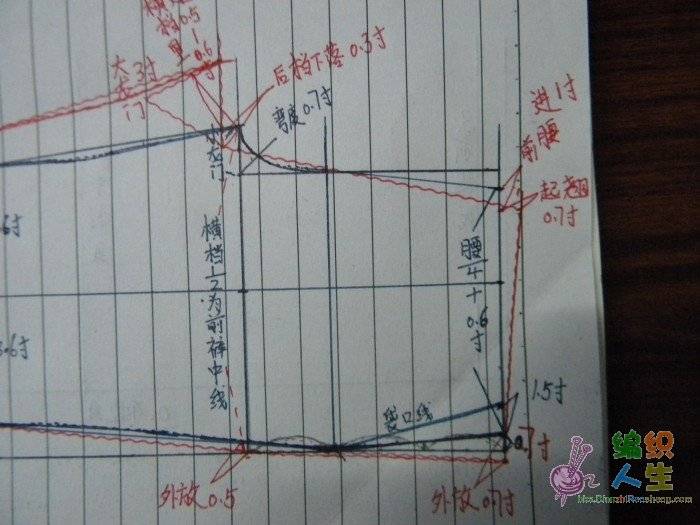 横
档0.5
里
1
0.6寸
大龙门
3寸
后档下落0.3寸
弯度0.7寸
进1寸
前腰
起翘
0.7寸
小龙门
横档1/2为前裤中线
腰/4+0.6寸
.6寸
3.6寸
袋口线
1.5寸
0.7寸
外放0.5
外放0.7寸
编织
人生